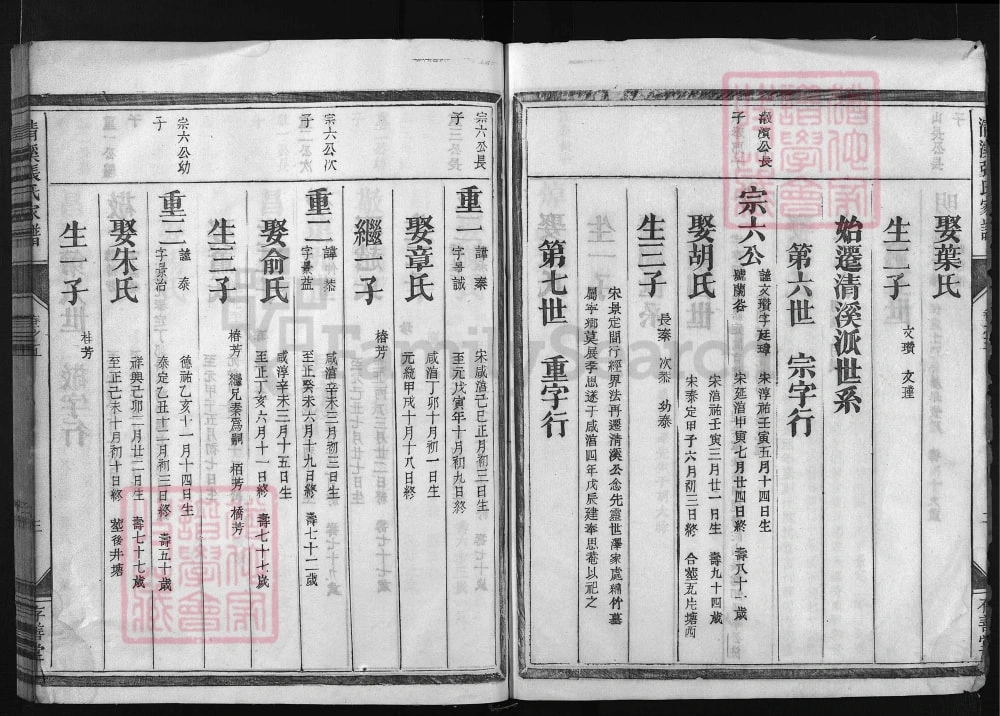 娶葉氏
生二子
文瓚 文瑾
始遷清溪派世系
第六世 宗字行
淑濱公長
子
宗六公
諡文瓚字廷瑋
號蘭谷
宋淳祐壬寅五月十四日生
宋延洎甲寅七月廿四日終 壽八十一歲
娶胡氏
宋淳祐壬寅三月廿一日生 壽九十四歲
宋泰定甲子六月初三日終 合塟五庄塘西
生三子
長秦 次恭 幼泰
宋景定間行經界法再遷清溪公念先靈世澤家處綿竹墓
屬寧鄉莫展孝思遂于咸淳四年戊辰建奉思菴以祀之
第七世 重字行
宗六公長
子
重一
諱秦
字景誠
宋咸淳己巳正月初三日生
至元戊寅年十月初九日終
娶章氏
咸淳丁卯十月初一日生
元統甲戌十月十八日終
繼一子
椿芳
宗六公次
子
重二
諱恭
字景益
咸淳辛未三月初三日生
至正癸未六月十九日終 壽七十二歲
娶俞氏
咸淳辛未三月十五日生
至正丁亥六月十一日終 壽七十七歲
生三子
椿芳 繼兄秦爲嗣 栢芳 橋芳
宗六公幼
子
重三
諡泰
字景治
德祐乙亥十一月十四日生
泰定乙丑十二月初三日終 壽五十歲
娶朱氏
祥興己卯二月廿二日生 壽七十七歲
至正乙未十月初十日終 塟後井塘
生一子
桂芳
清溪張氏家譜
存善堂